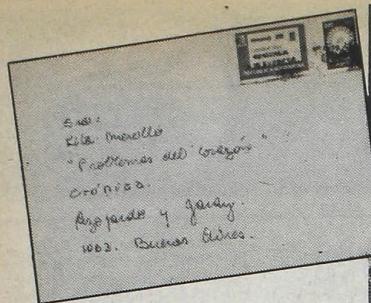 Sra:
Lila Morello
"Problemas del Corazón"
Crónica.
Azopardo y Garay.
1063. Buenos Aires.